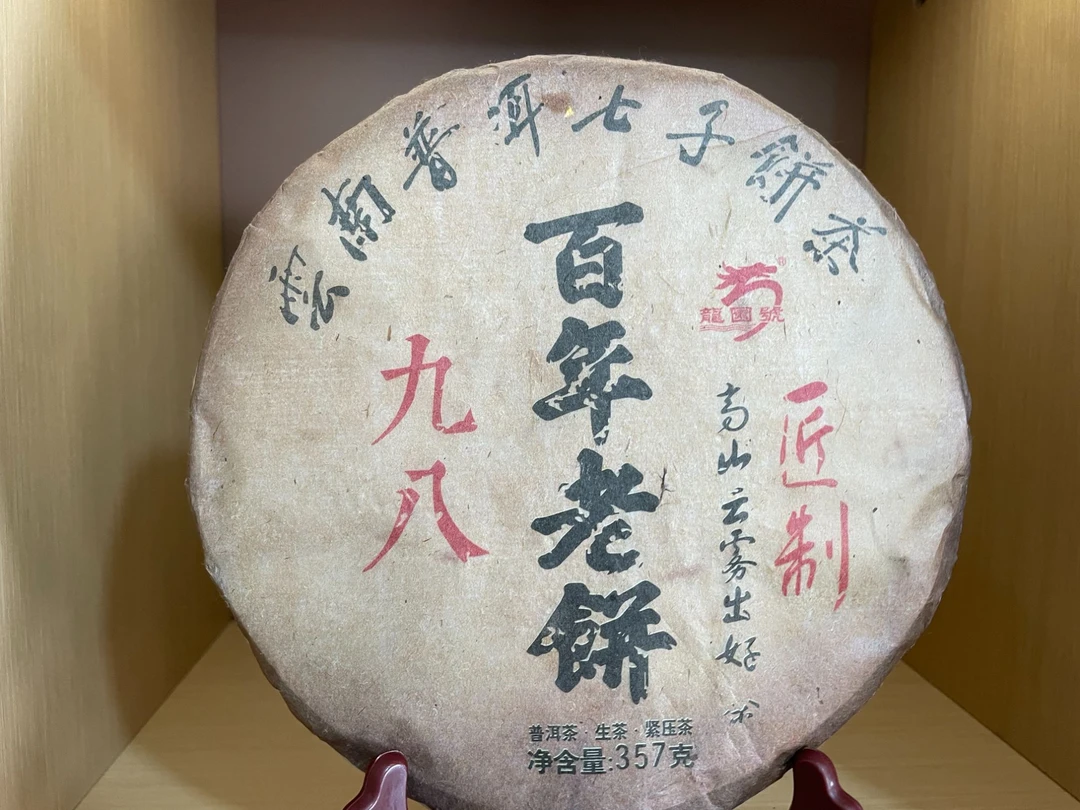 雲南普洱七子餅茶
百年老餅
九八
龍園號
匠制
高山云雾出好茶
普洱茶·生茶·紧压茶
净含量:357克